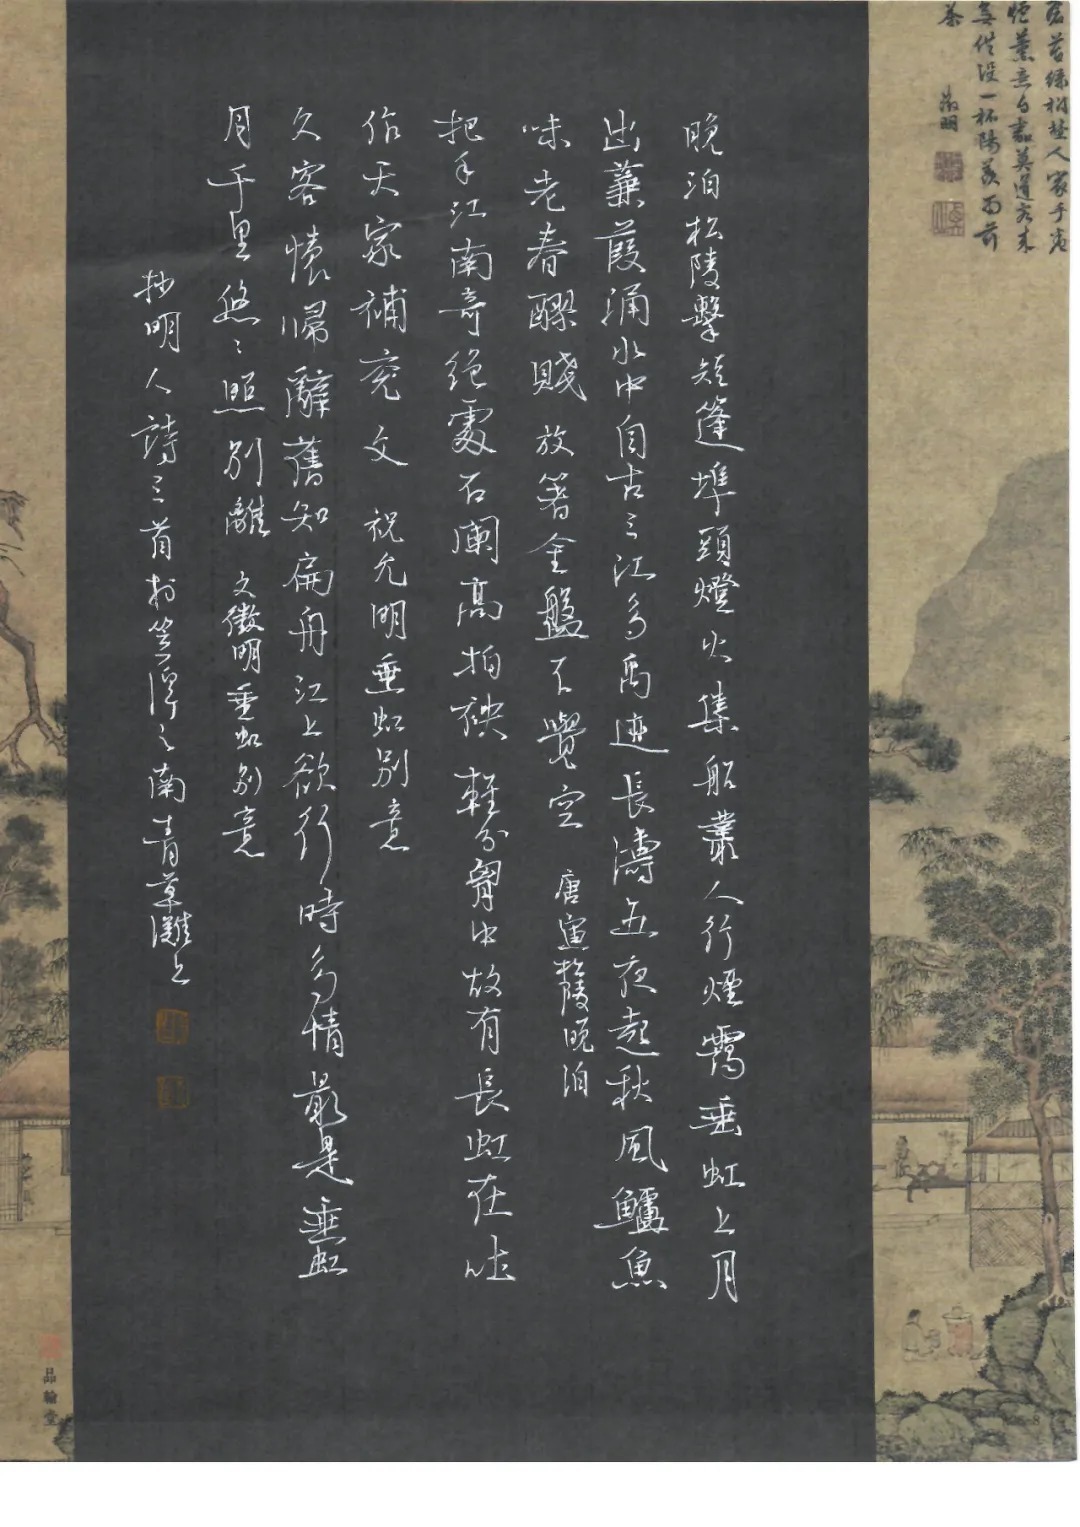 碧苔綠樹埜人家手卷
爐薰意自嘉莫道客來
無供設一杯陽羨雨前
茶
徵明
晚泊松陵擊短篷埠頭燈火集船叢人行煙靄垂虹上月
出蒹葭涌水中自古三江多禹迹長濤五夜起秋風鱸魚
味老春醪賤放箸金盤不覺空 唐寅松陵晚泊
把手江南奇絕處石闌高拍袂輕分胷中故有長虹在吐
作天家補兗文 祝允明垂虹別意
久客懷歸辭舊知扁舟江上欲行時多情最是垂虹
月千里悠〻照別離 文徵明垂虹別意
抄明人詩三首於笠澤之南青草灘上
品翰堂